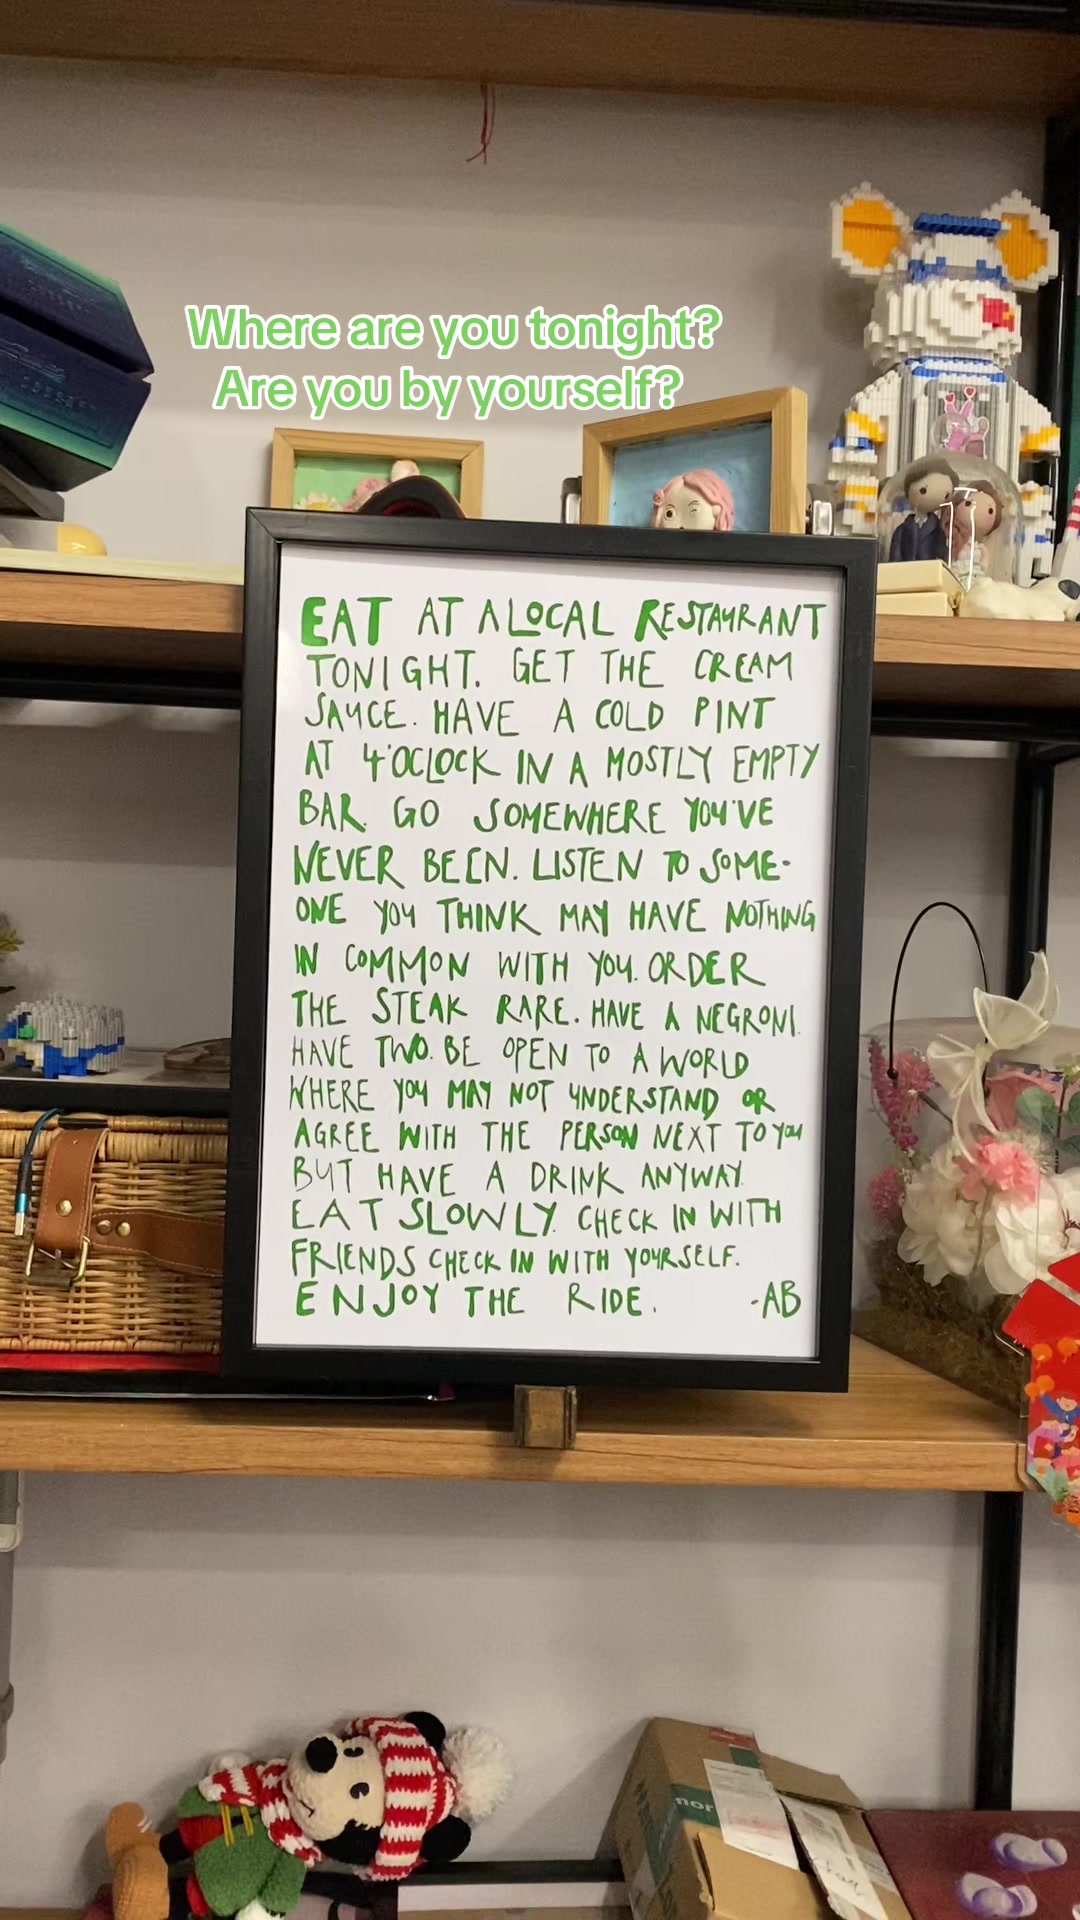 Where are you tonight?
Are you by yourself?
EAT AT A LOCAL RESTAURANT
TONIGHT. GET THE CREAM
SAUCE. HAVE A COLD PINT
AT 4'OCLOCK IN A MOSTLY EMPTY
BAR. GO SOMEWHERE YOU'VE
NEVER BEEN. LISTEN TO SOME-
ONE YOU THINK MAY HAVE NOTHING
IN COMMON WITH YOU. ORDER
THE STEAK RARE. HAVE A NEGRONI.
HAVE TWO. BE OPEN TO A WORLD
WHERE YOU MAY NOT UNDERSTAND OR
AGREE WITH THE PERSON NEXT TO YOU
BUT HAVE A DRINK ANYWAY.
EAT SLOWLY. CHECK IN WITH
FRIENDS CHECK IN WITH YOURSELF.
ENJOY THE RIDE. -AB
nor